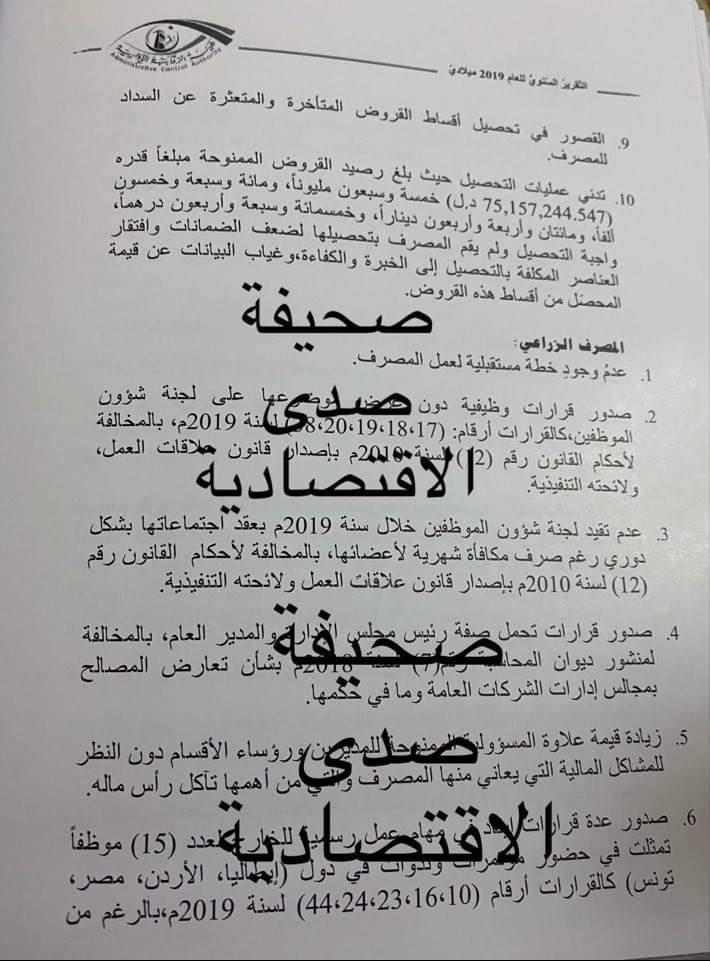 هيئة الرقابة الإدارية
Administrative Control Authority
التقرير السنوي للعام 2019 ميلادي
9. القصور في تحصيل أقساط القروض المتأخرة والمتعثرة عن السداد
للمصرف.
10. تدني عمليات التحصيل حيث بلغ رصيد القروض الممنوحة مبلغاً قدره
(75,157,244.547 د.ل) خمسة وسبعون مليوناً، ومائة وسبعة وخمسون
ألفاً، ومائتان وأربعة وأربعون ديناراً، وخمسمائة وسبعة وأربعون درهماً،
واجبة التحصيل ولم يقم المصرف بتحصيلها لضعف الضمانات وافتقار
العناصر المكلفة بالتحصيل إلى الخبرة والكفاءة،وغياب البيانات عن قيمة
المحصل من أقساط هذه القروض.
صحيفة
المصرف الزراعي:
1. عدمُ وجودِ خطة مستقبلية لعمل المصرف.
2. صدور قرارات وظيفية دون على لجنة شؤون
صدى
الموظفين،كالقرارات أرقام: (17،18،19،20،38) لسنة 2019م، بالمخالفة
لأحكام القانون رقم (12) لسنة 2010م بإصدار قانون علاقات العمل،
الاقتصادية
ولائحته التنفيذية.
3. عدم تقيد لجنة شؤون الموظفين خلال سنة 2019م بعقد اجتماعاتها بشكل
دوري رغم صرف مكافأة شهرية لأعضائها، بالمخالفة لأحكام القانون رقم
(12) لسنة 2010م بإصدار قانون علاقات العمل ولائحته التنفيذية.
4. صدور قرارات تحمل صفة رئيس مجلس الإدارة والمدير العام، بالمخالفة
صحيفة
لمنشور ديوان المحاسبة رقم(7) لسنة 2018م بشأن تعارض المصالح
بمجالس إدارات الشركات العامة وما في حكمها.
5. زيادة قيمة علاوة المسؤولية الممنوحة للمديرين ورؤساء الأقسام دون النظر
صدى
للمشاكل المالية التي يعاني منها المصرف والتي من أهمها تآكل رأس ماله.
6. صدور عدة قرارات إيفاد في مهام عمل رسمية للخارج لعدد (15) موظفاً
الاقتصادية
تمثلت في حضور مؤتمرات وندوات في دول (إيطاليا، الأردن، مصر،
تونس) كالقرارات أرقام (10،16،23،24،44) لسنة 2019م،بالرغم من